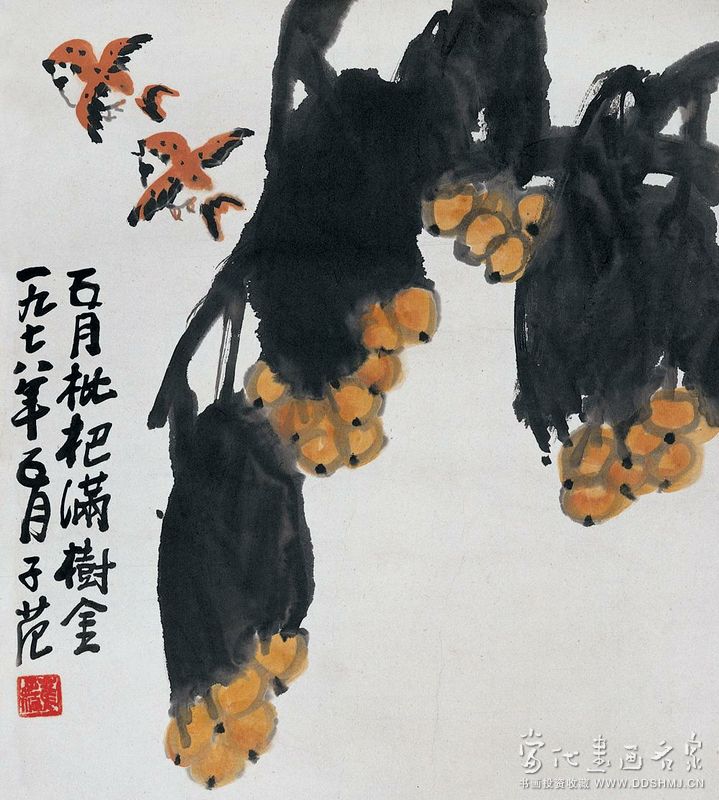 五月枇杷滿樹金
一九七八年五月子范
当代書画名家
书画投资收藏 WWW.DDSHMJ.CN